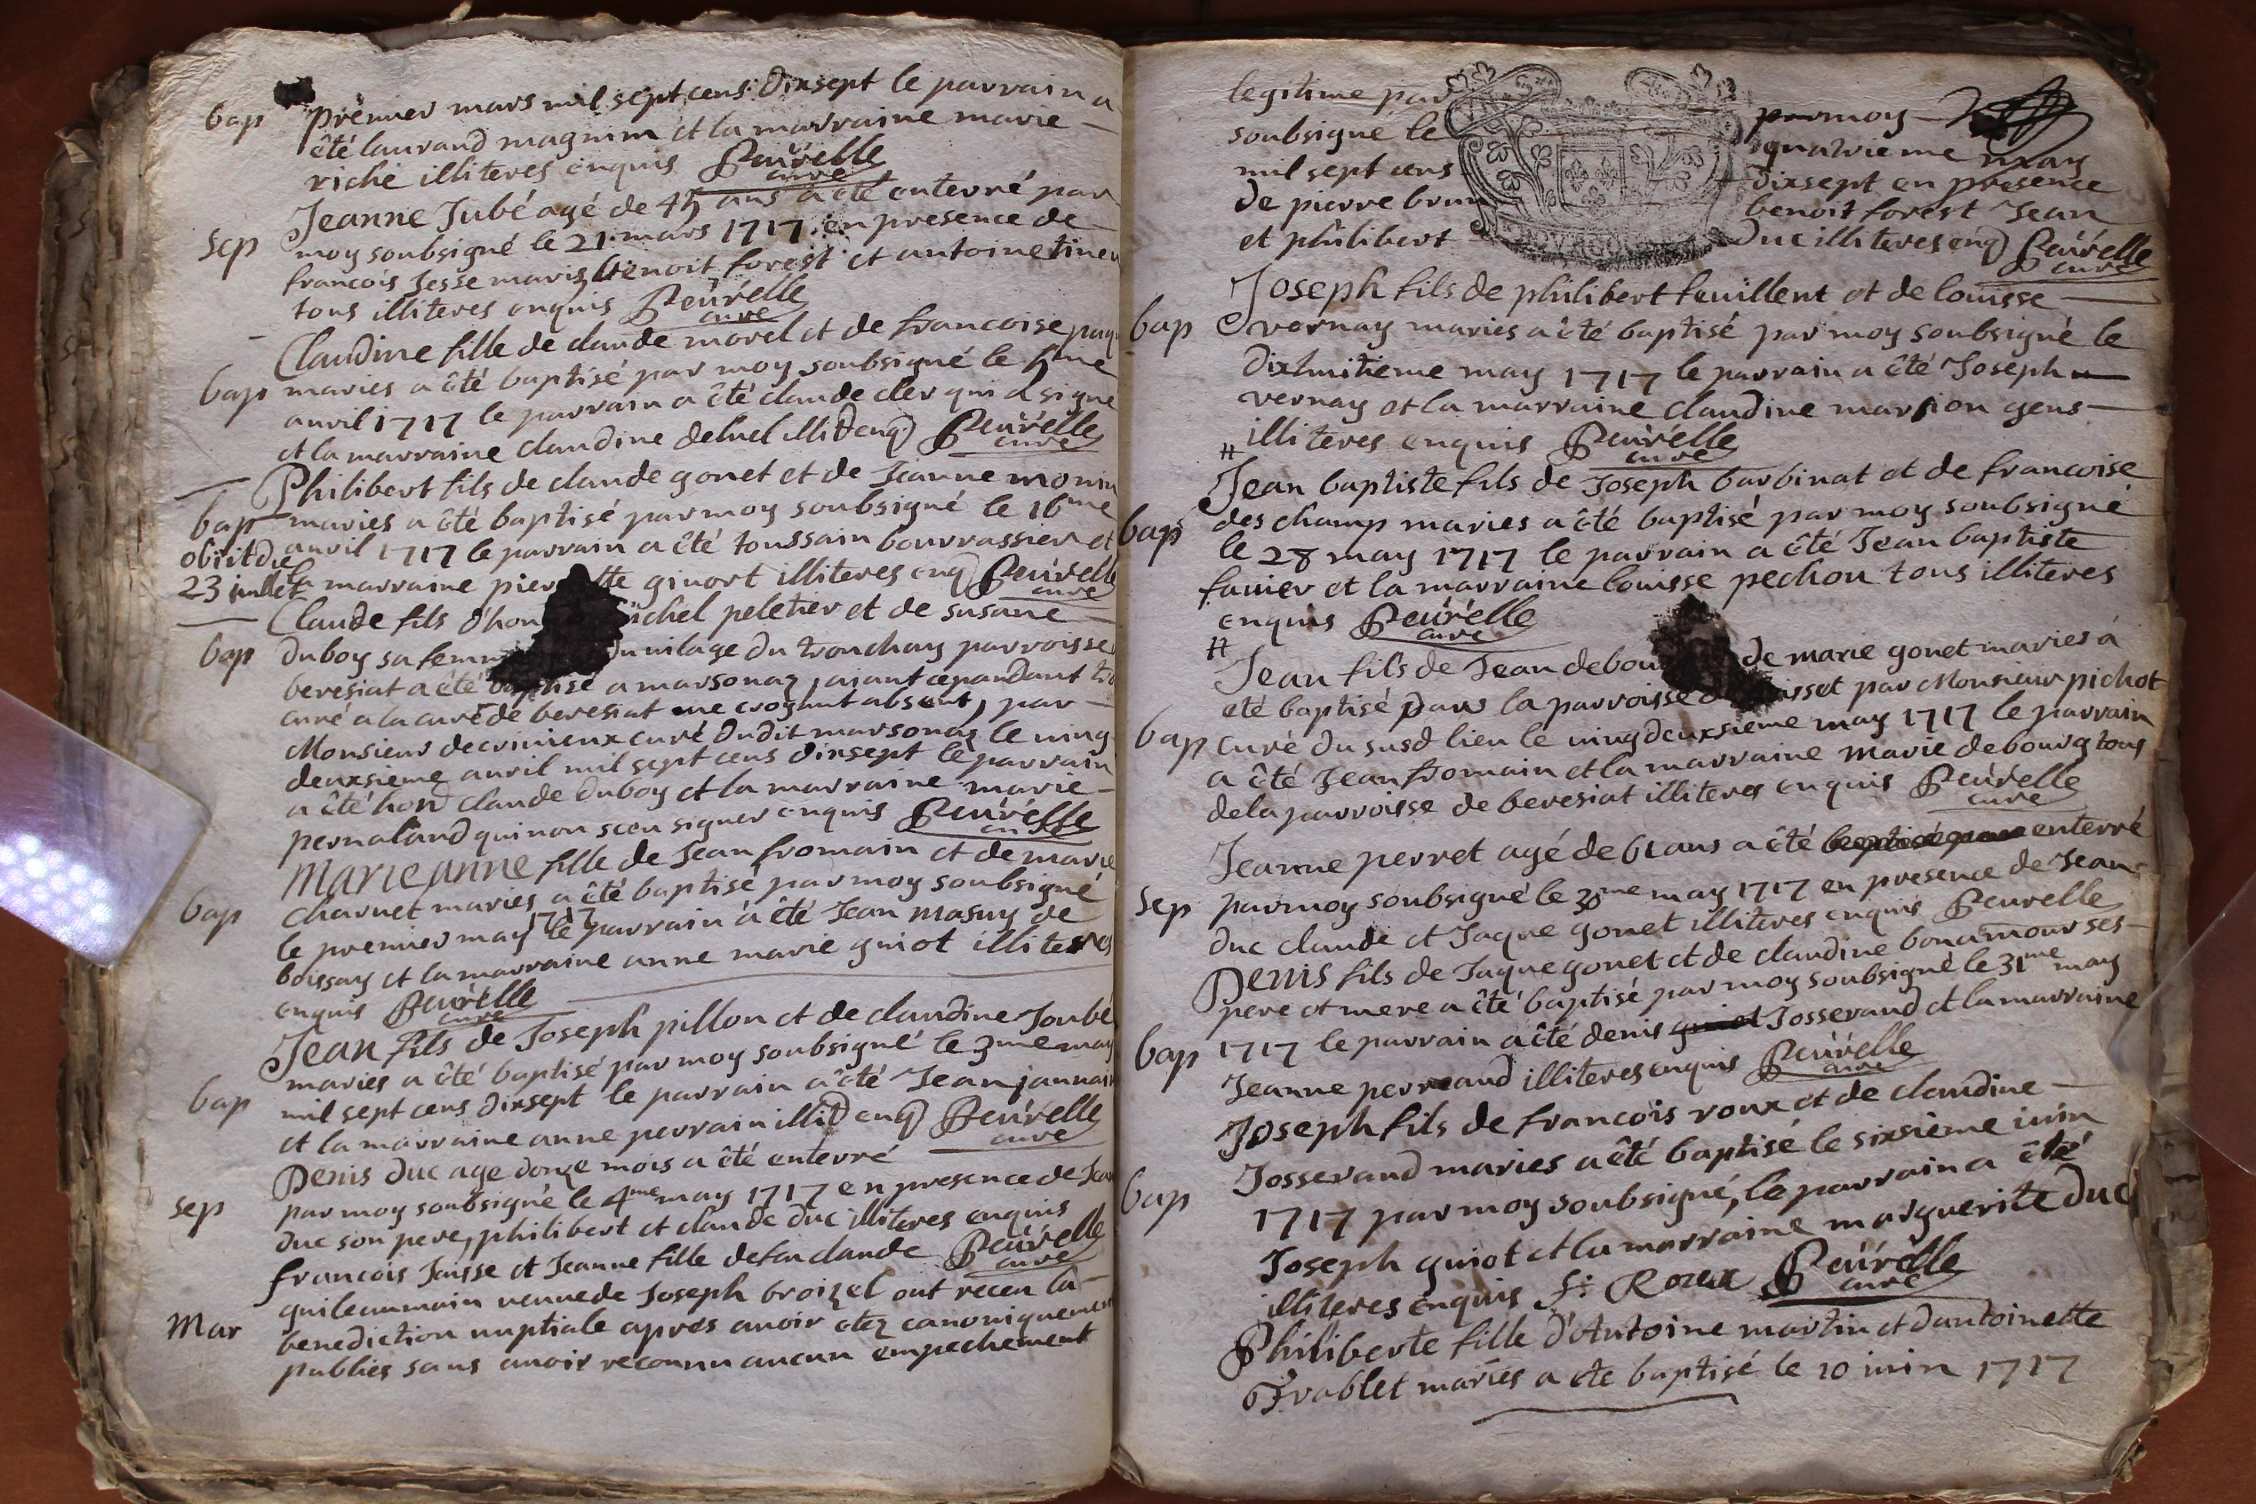 bap premier mars mil sept cens dixsept le parrain a
été laurand magnin et la marraine marie
riche illiteres enquis Beurelle
curé
Jeanne Jubé agé de 45 ans a été enterré par
sep moy soubsigné le 21 mars 1717 en presence de
francois Jesse maris benoit forest et antoine tine
tous illiteres enquis Beurelle
curé
Claudine fille de claude morel et de francoise
bap maries a êté baptisé par moy soubsigné le 5me
auvil 1717 le parrain a êté claude cler qui a signe
et la marraine claudine deluel illit enq Beurelle
curé
Philibert fils de claude gonet et de Jeanne monin
bap maries a êté baptisé par moy soubsigné le 16me
obiit die auril 1717 le parrain a êté toussain bourrassier et
23 juillet la marraine pier tte ginort illiteres enq Beurelle
curé
Claude fils d'hon ichel peletier et de susane
bap duboy sa femm du uilage du tronchay parroisse
beresiat a été baptisé a marsonaz, aiant cependant
curé a la cure de beresiat me croyant absent, par
Monsieur de crinieux curé dudit marsonaz le uing
deuxsieme auril mil sept cens dixsept le parrain
a êté hon claude duboy et la marraine marie
pernaland qui non sceu signer enquis Beurelle
curé
Marie anne fille de Jean fromain et de marie
bap charnet maries a êté baptisé par moy soubsigné
le premier may 1717 le parrain a êté Jean masuy de
boissay et la marraine anne marie guiot illiteres
enquis Beurelle
curé
Jean fils de Joseph pillon et de claudine Joubé
maries a êté baptisé par moy soubsigné le 3me may
bap mil sept cens dixsept le parrain a êté Jean jannain
et la marraine anne perrain illit enq Beurelle
curé
Denis duc age donze mois a êté enterré
sep par moy soubsigné le 4me may 1717 en presence de Jean
duc son pere, philibert et claude duc illiteres enquis
francois Jaisse et Jeanne fille defan claude Beurelle
curé
guileaumain ueuuede Joseph broizel ont receu la
Mar benediction nuptiale apres auoir etez canoniquement
publies sans auoir reconnu aucun empechement
legitime par par moy
soubsigné le quatrieme may
mil sept cens dixsept en presence
de pierre brun benoit forest Jean
et philibert duc illiteres enq Beurelle
curé
Joseph fils de philibert feuillent et de louisse
bap vernay maries a êté baptisé par moy soubsigné le
dixhuitieme may 1717 le parrain a êté Joseph
vernay et la marraine claudine marsion gens
illiteres enquis Beurelle
curé
Jean baptiste fils de Joseph barbinat et de francoise
bap des champ maries a êté baptisé par moy soubsigné
le 28 may 1717 le parrain a êté Jean baptiste
fauier et la marraine louisse pechou tous illiteres
enquis Beurelle
curé
Jean fils de Jean debou de marie gonet maries a
eté baptisé dans la parroisse isset par Monsieur pichot
bap curé du susd lieu le uingdeuxsieme may 1717 le parrain
a êté Jean fromain et la marraine Marie debourg tous
dela parroisse de beresiat illiteres enquis Beurelle
curé
Jeanne perret agé de 61 ans a êté baptisé par enterré
sep par moy soubsigné le 30me may 1717 en presence de Jean
duc claude et Jaque gonet illiteres enquis Beurelle
Denis fils de Jaque gonet et de claudine bonamour ses
pere et mere a êté baptisé par moy soubsigné le 31me may
bap 1717 le parrain a êté denis guiot Josserand et la marraine
Jeanne perreaud illiteres enquis Beurelle
curé
Joseph fils de francois roux et de claudine
Josserand maries a êté baptisé le sixsieme iuin
bap 1717 par moy soubsigné, le parrain a êté
Joseph guiot et la marraine marguerite duc
illiteres enquis f: Roux Beurelle
curé
Philiberte fille d'Antoine martin et dantoinette
Frablet maries a ete baptisé le 10 iuin 1717